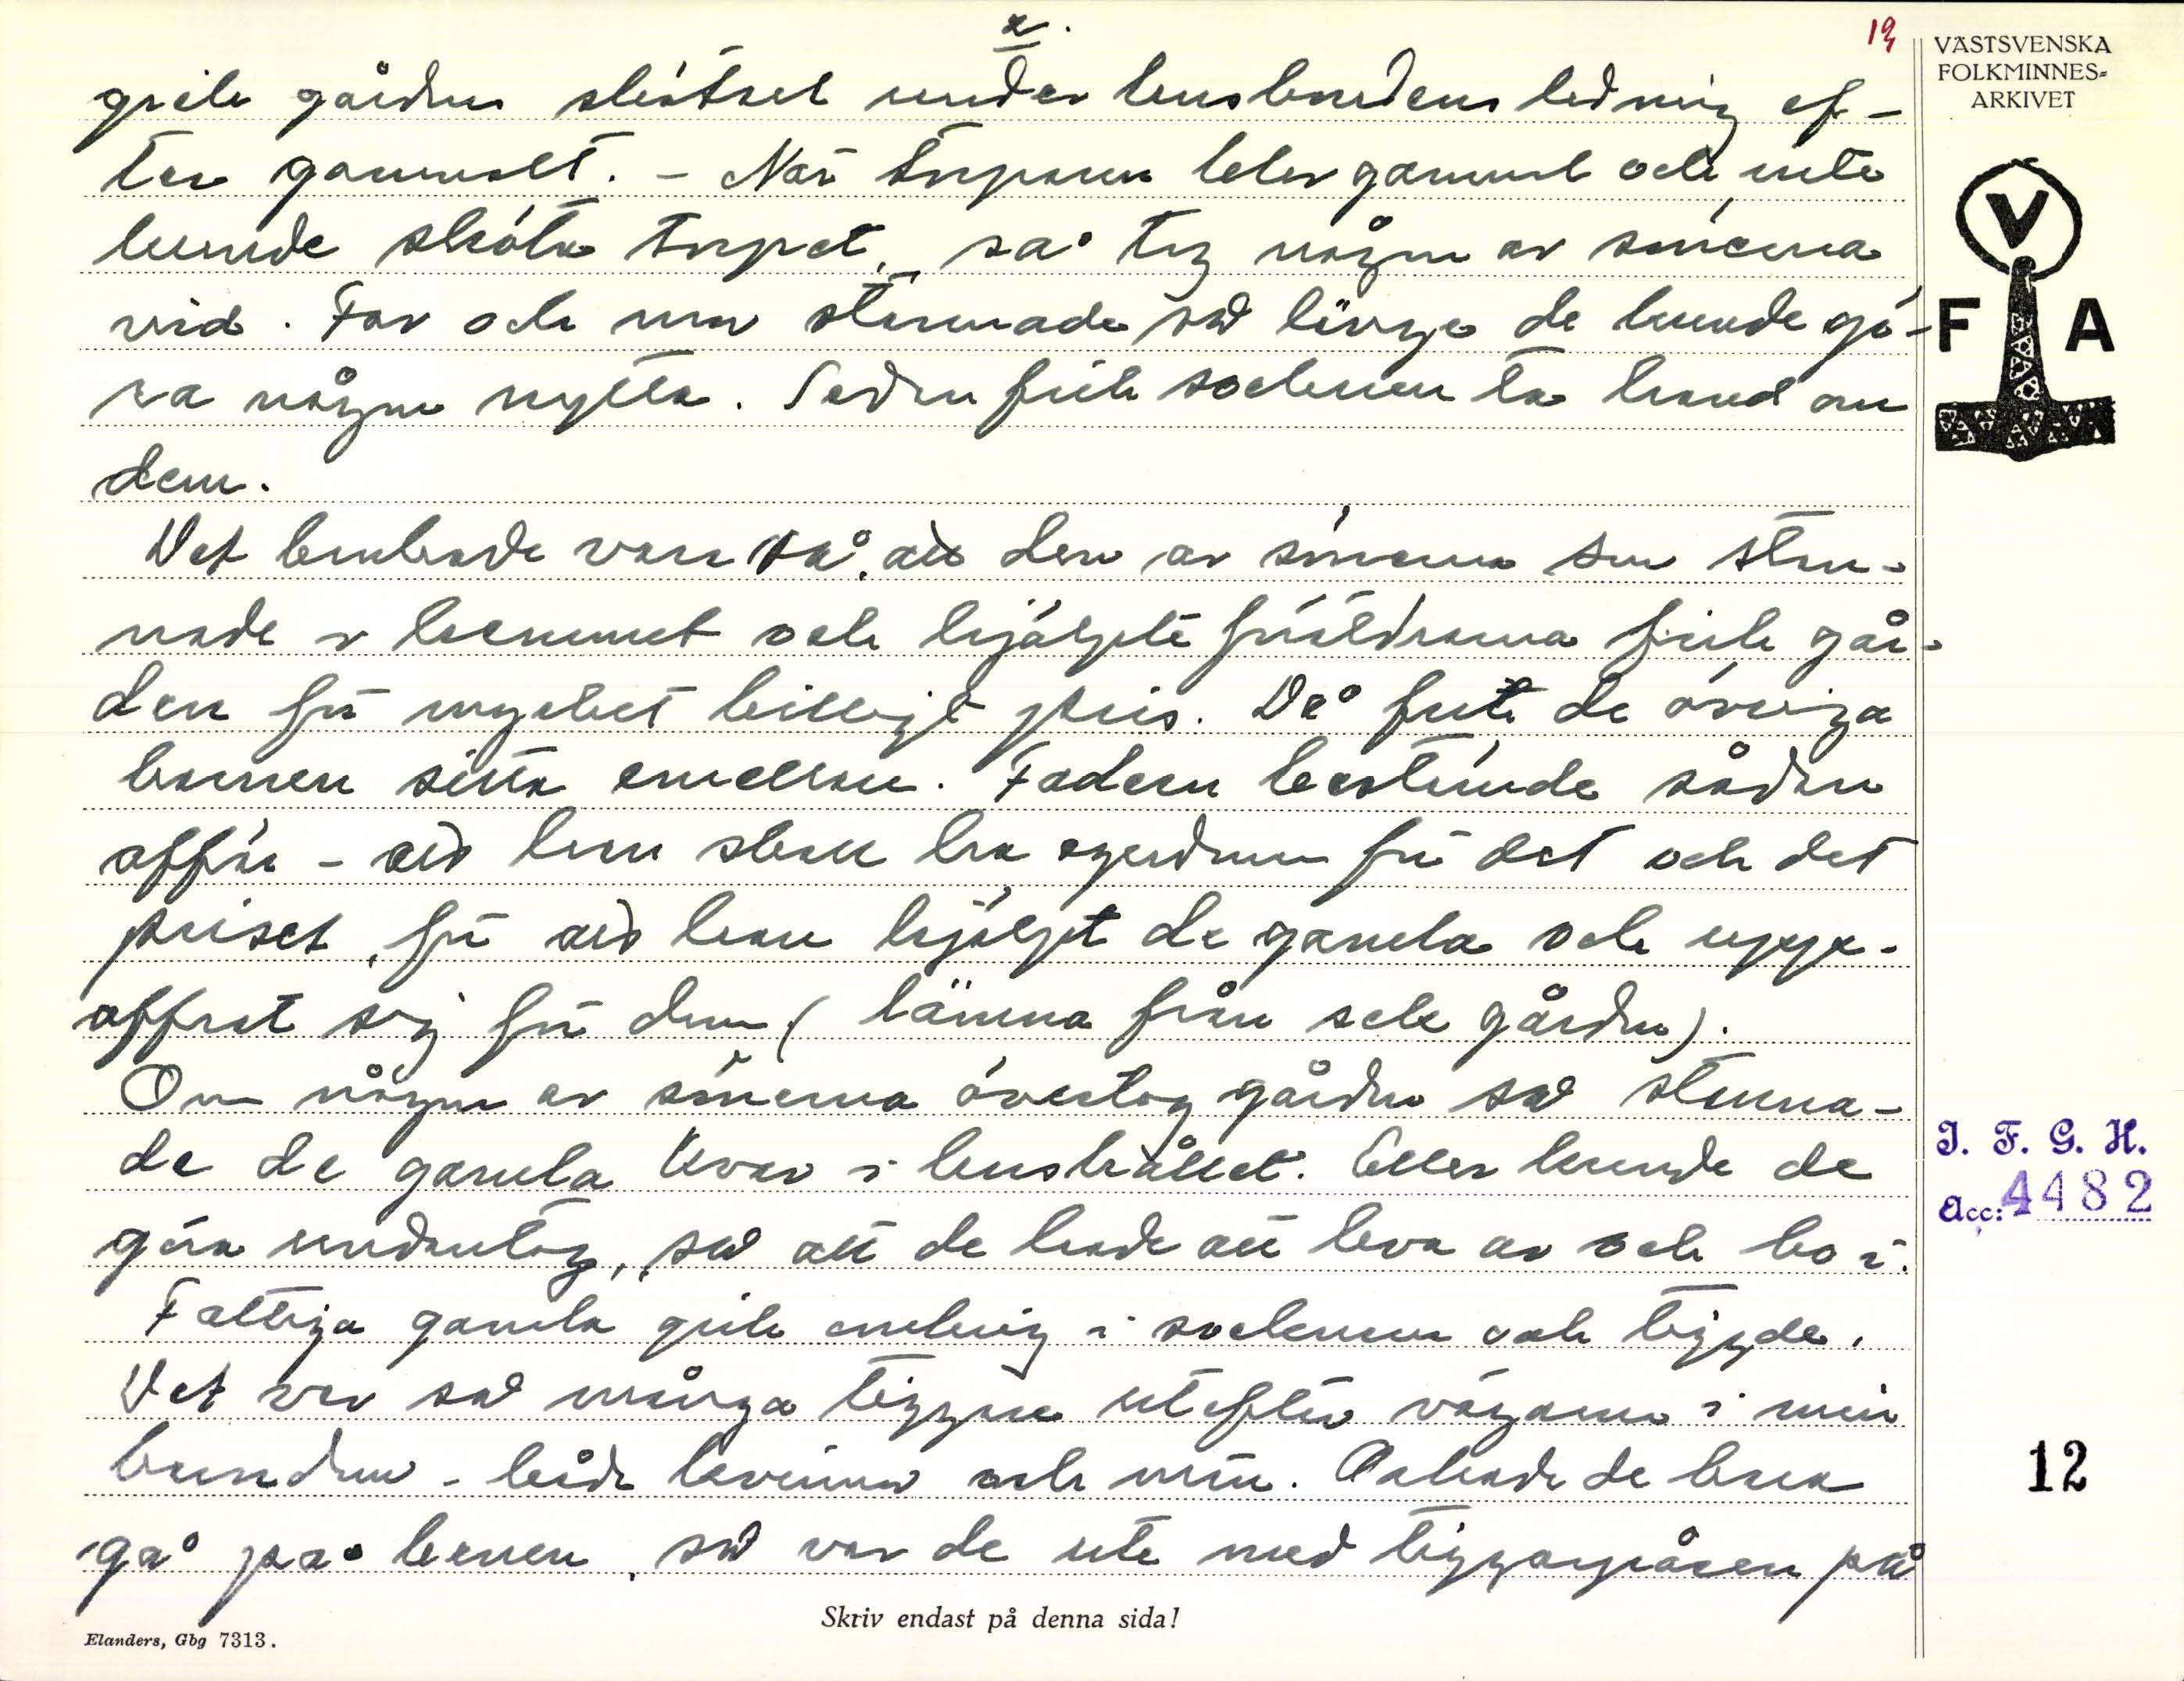 2.
12
VÄSTSVENSKA
FOLKMINNES-
ARKIVET
V
F A
gick gården skötsel under husbondens ledning ef-
ter gammalt. - När torparen blev gammal och inte
kunde sköta torpet, så tog någon av sönerna
vid. Far och mor stannade så länge de kunde gö-
ra någon nytta. Sedan fick socknen ta hand om
dem.
Det brukade vara så, att den av sönerna som stan-
nade i hemmet och hjälpte föräldrarna fick går-
den för mycket billigt pris. Då fick de övriga
barnen sitta emellan. Fadern bestämde sådan
affär - att han skall ha egendomen för det och det
priset, för att han hjälpt de gamla och upp-
offrat sig för dem (lämna från sele gården).
Om någon av sönerna övertog gården så stanna-
de de gamla kvar i hushållet. Eller kunde de
göra undantag, så att de hade att leva av och bo i.
Fattiga gamla gick omkring i socknen och tiggde.
Det var så många tiggare utefter vägarna i min
barndom - både kvinnor och män. Orkade de bara
gå på benen, så var de ute med tiggarpåsen på
I. F. G. H.
Acc: 4482
12
Skriv endast på denna sida!
Elanders, Gbg 7313.